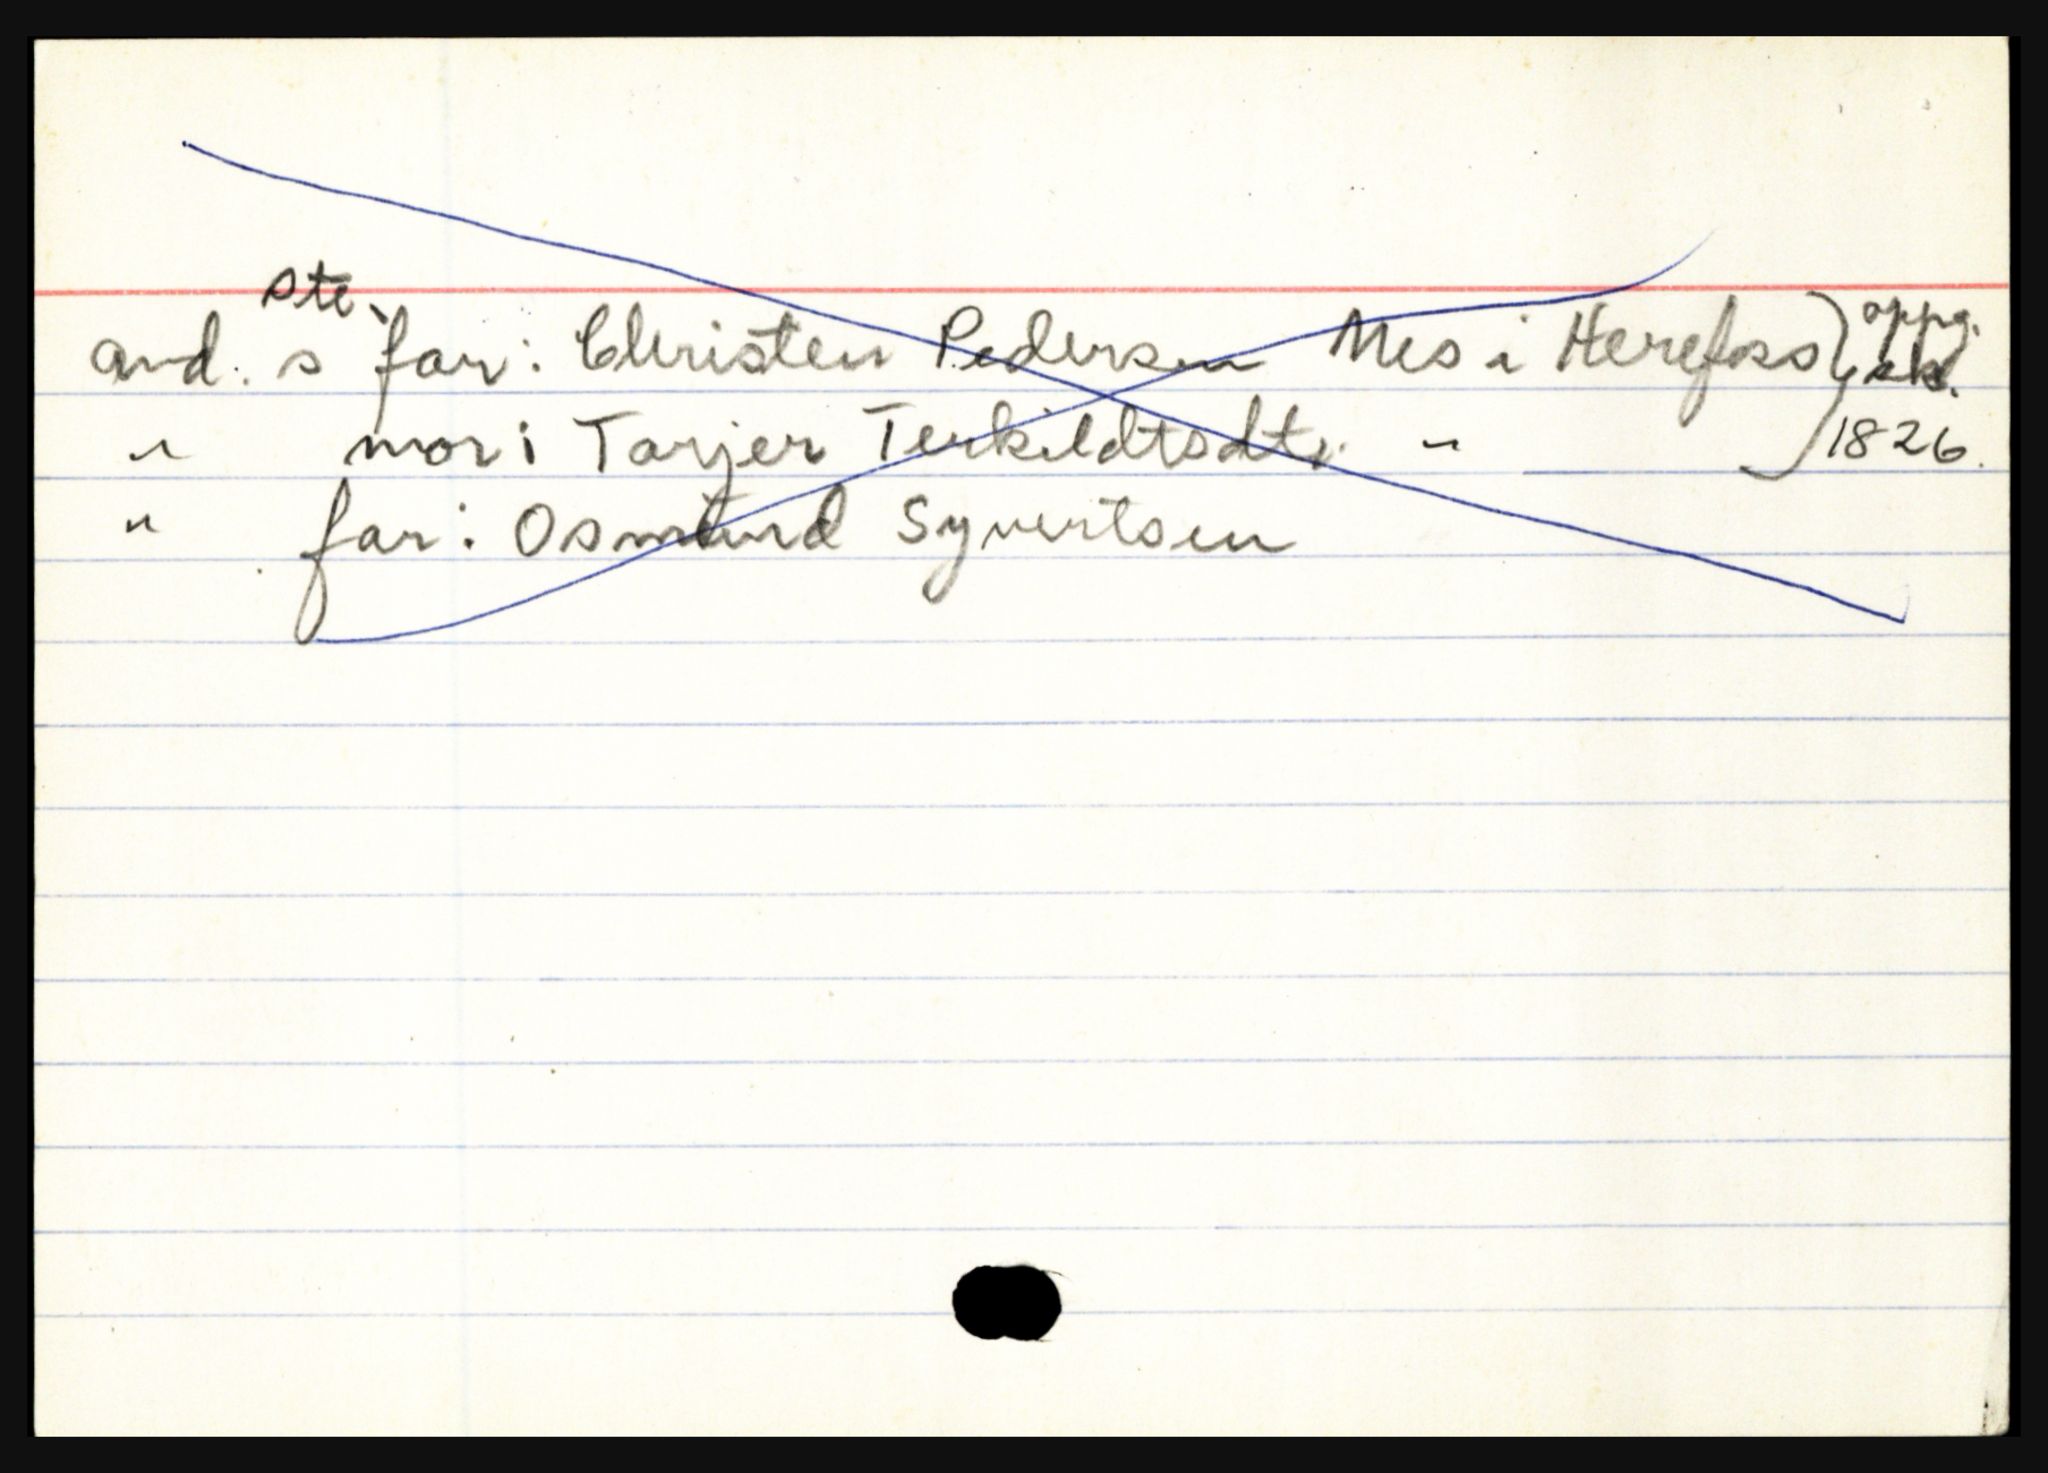 ste.
and. s far: Christen Pedersen Nes i Herefoss } oppg. sk.
" mor: Tarjer Terkildtsdtr. " 1826.
" far: Osmund Syvertsen